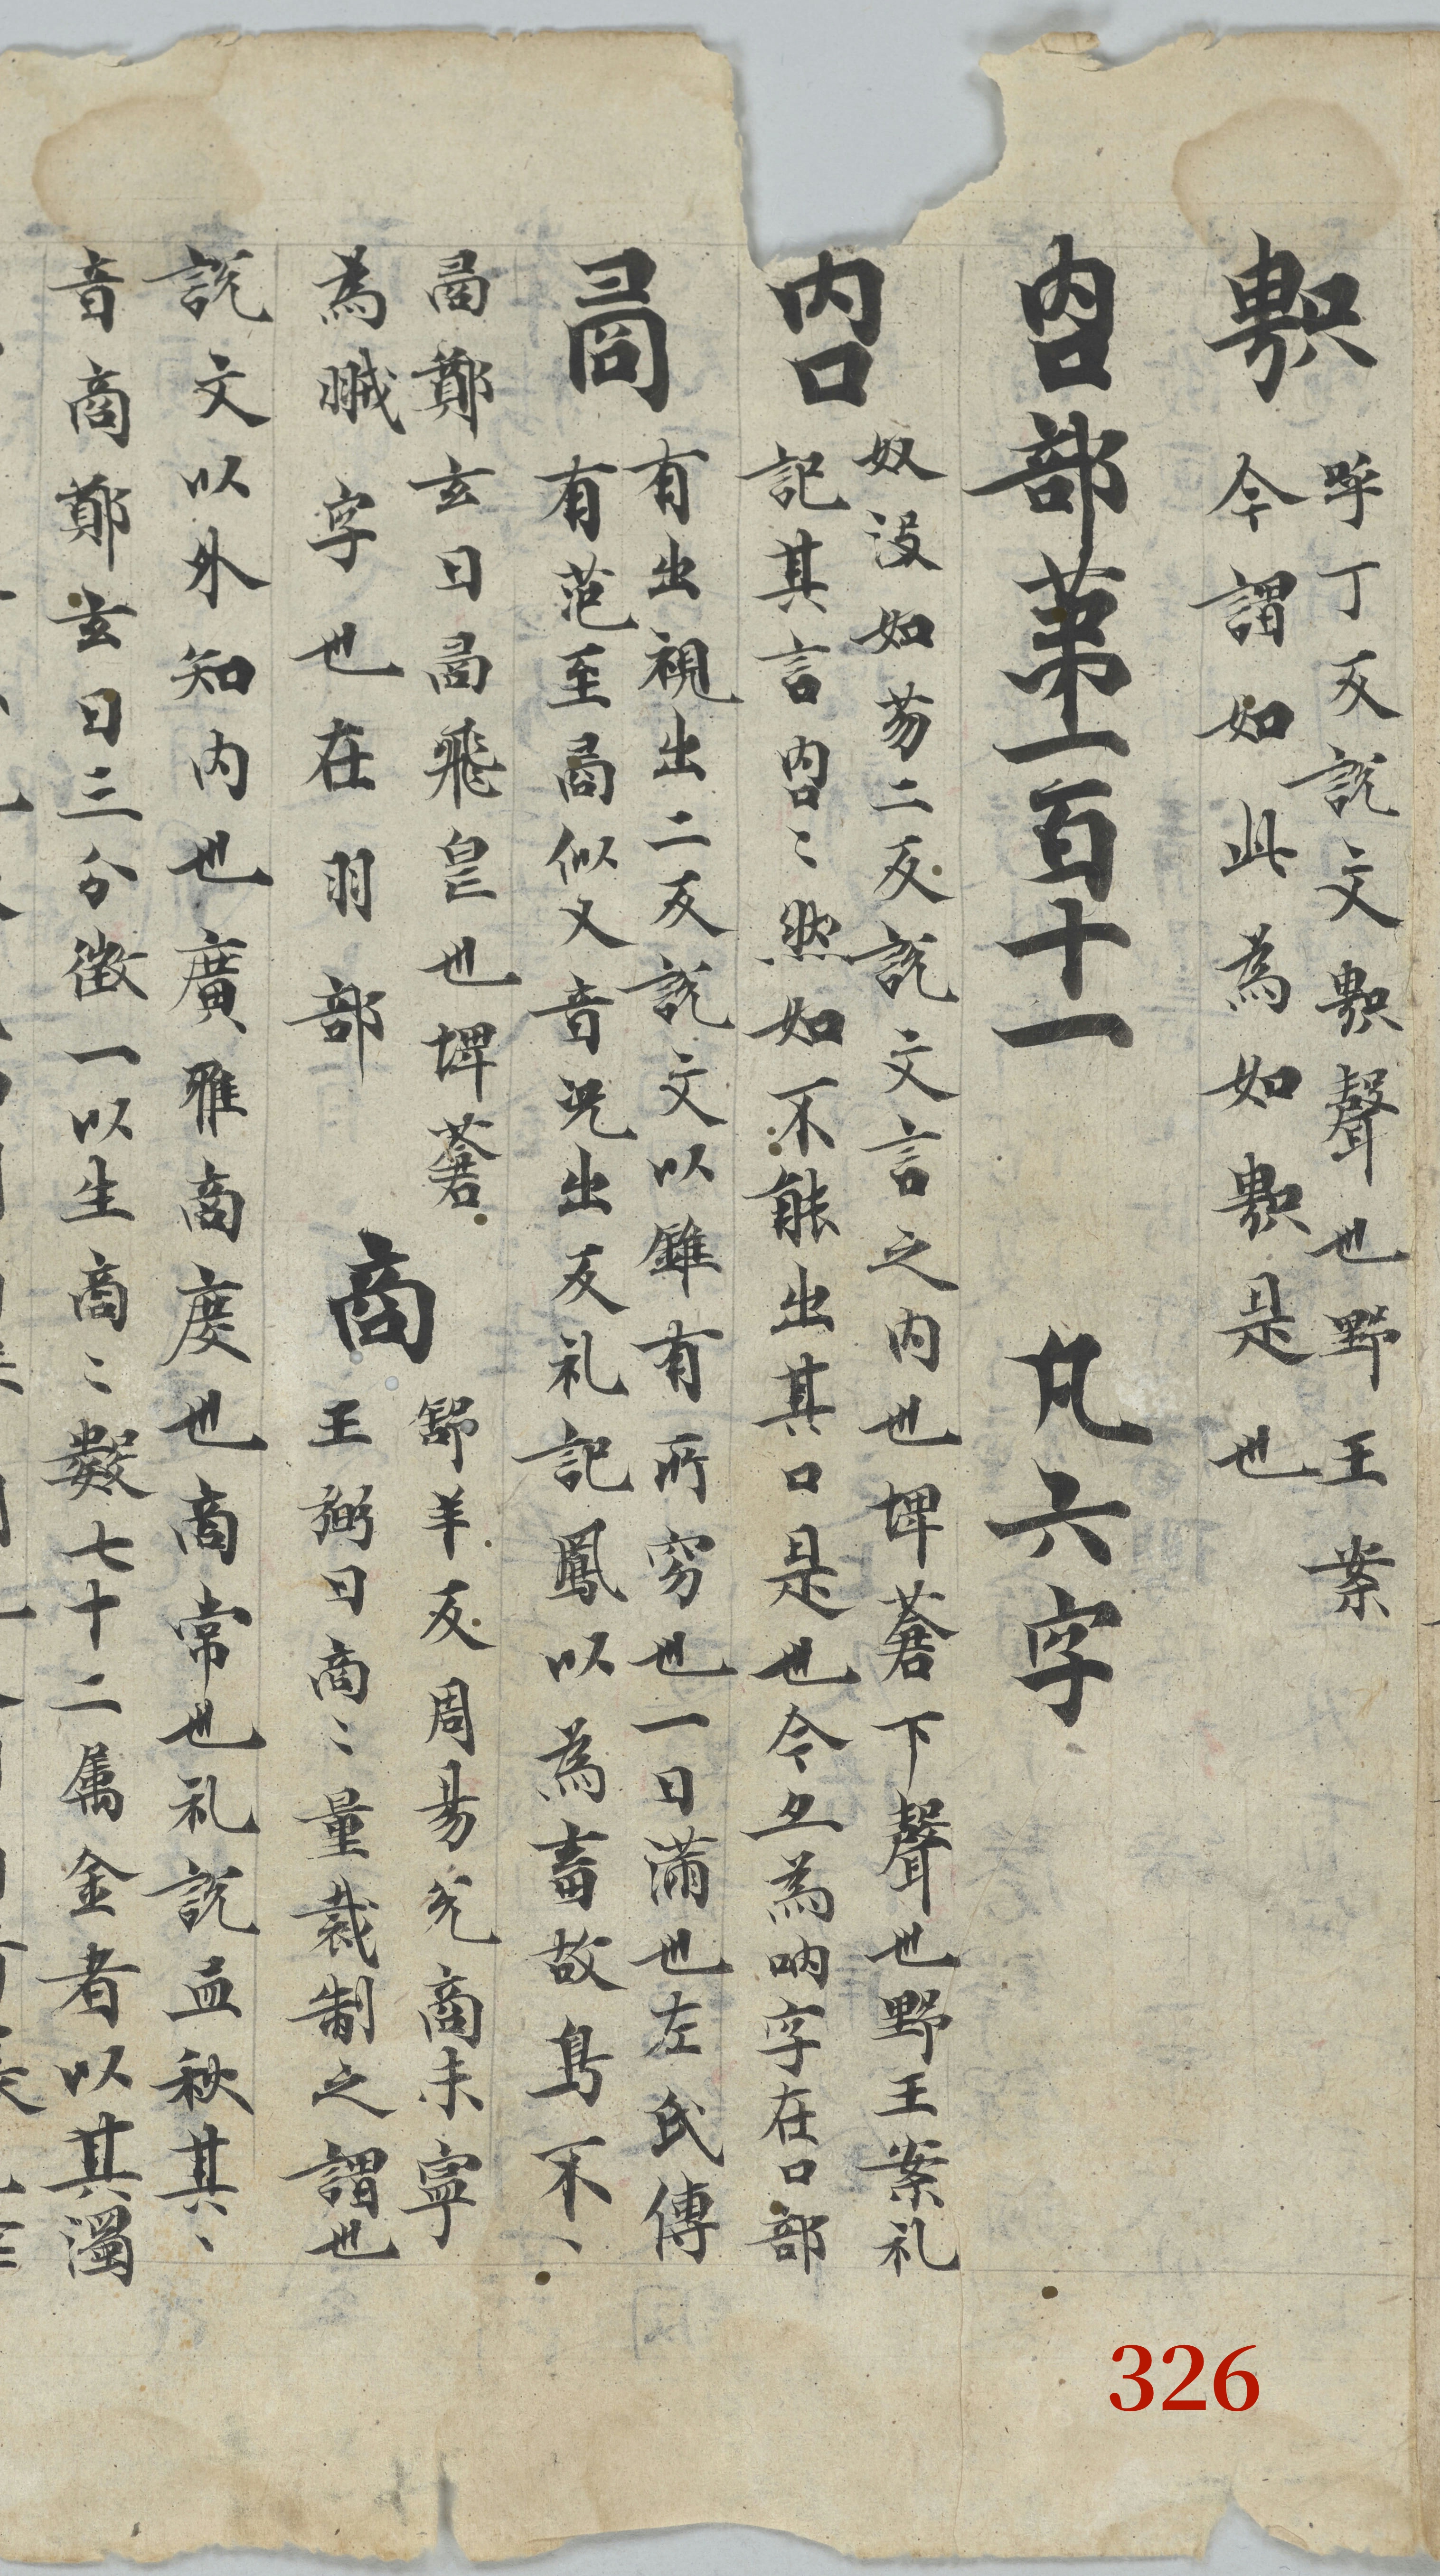 𠷎
呼丁反說文𠷎聲也野王案
今謂如此為如𠷎是也
㕯部第一百十一 凡六字
㕯
奴沒如芴二反說文言之內也埤蒼下聲也野王案礼
記其言㕯〻然如不能出其口是也今亦為吶字在口部
矞
有出視出二反說文以錐有所穷也一曰滿也左氏傳
有范至矞似又音況出反礼記鳳以為畜故鳥不〻
矞鄭玄曰矞飛皃也埤蒼
為䎉字也在羽部
商
舒羊反周易兊商未寧
王弼曰商〻量裁制之謂也
說文以外知內也廣雅商度也商常也礼說孟秋其〻
音商鄭玄曰三分徵一以生商〻數七十二属金者以其濁
326